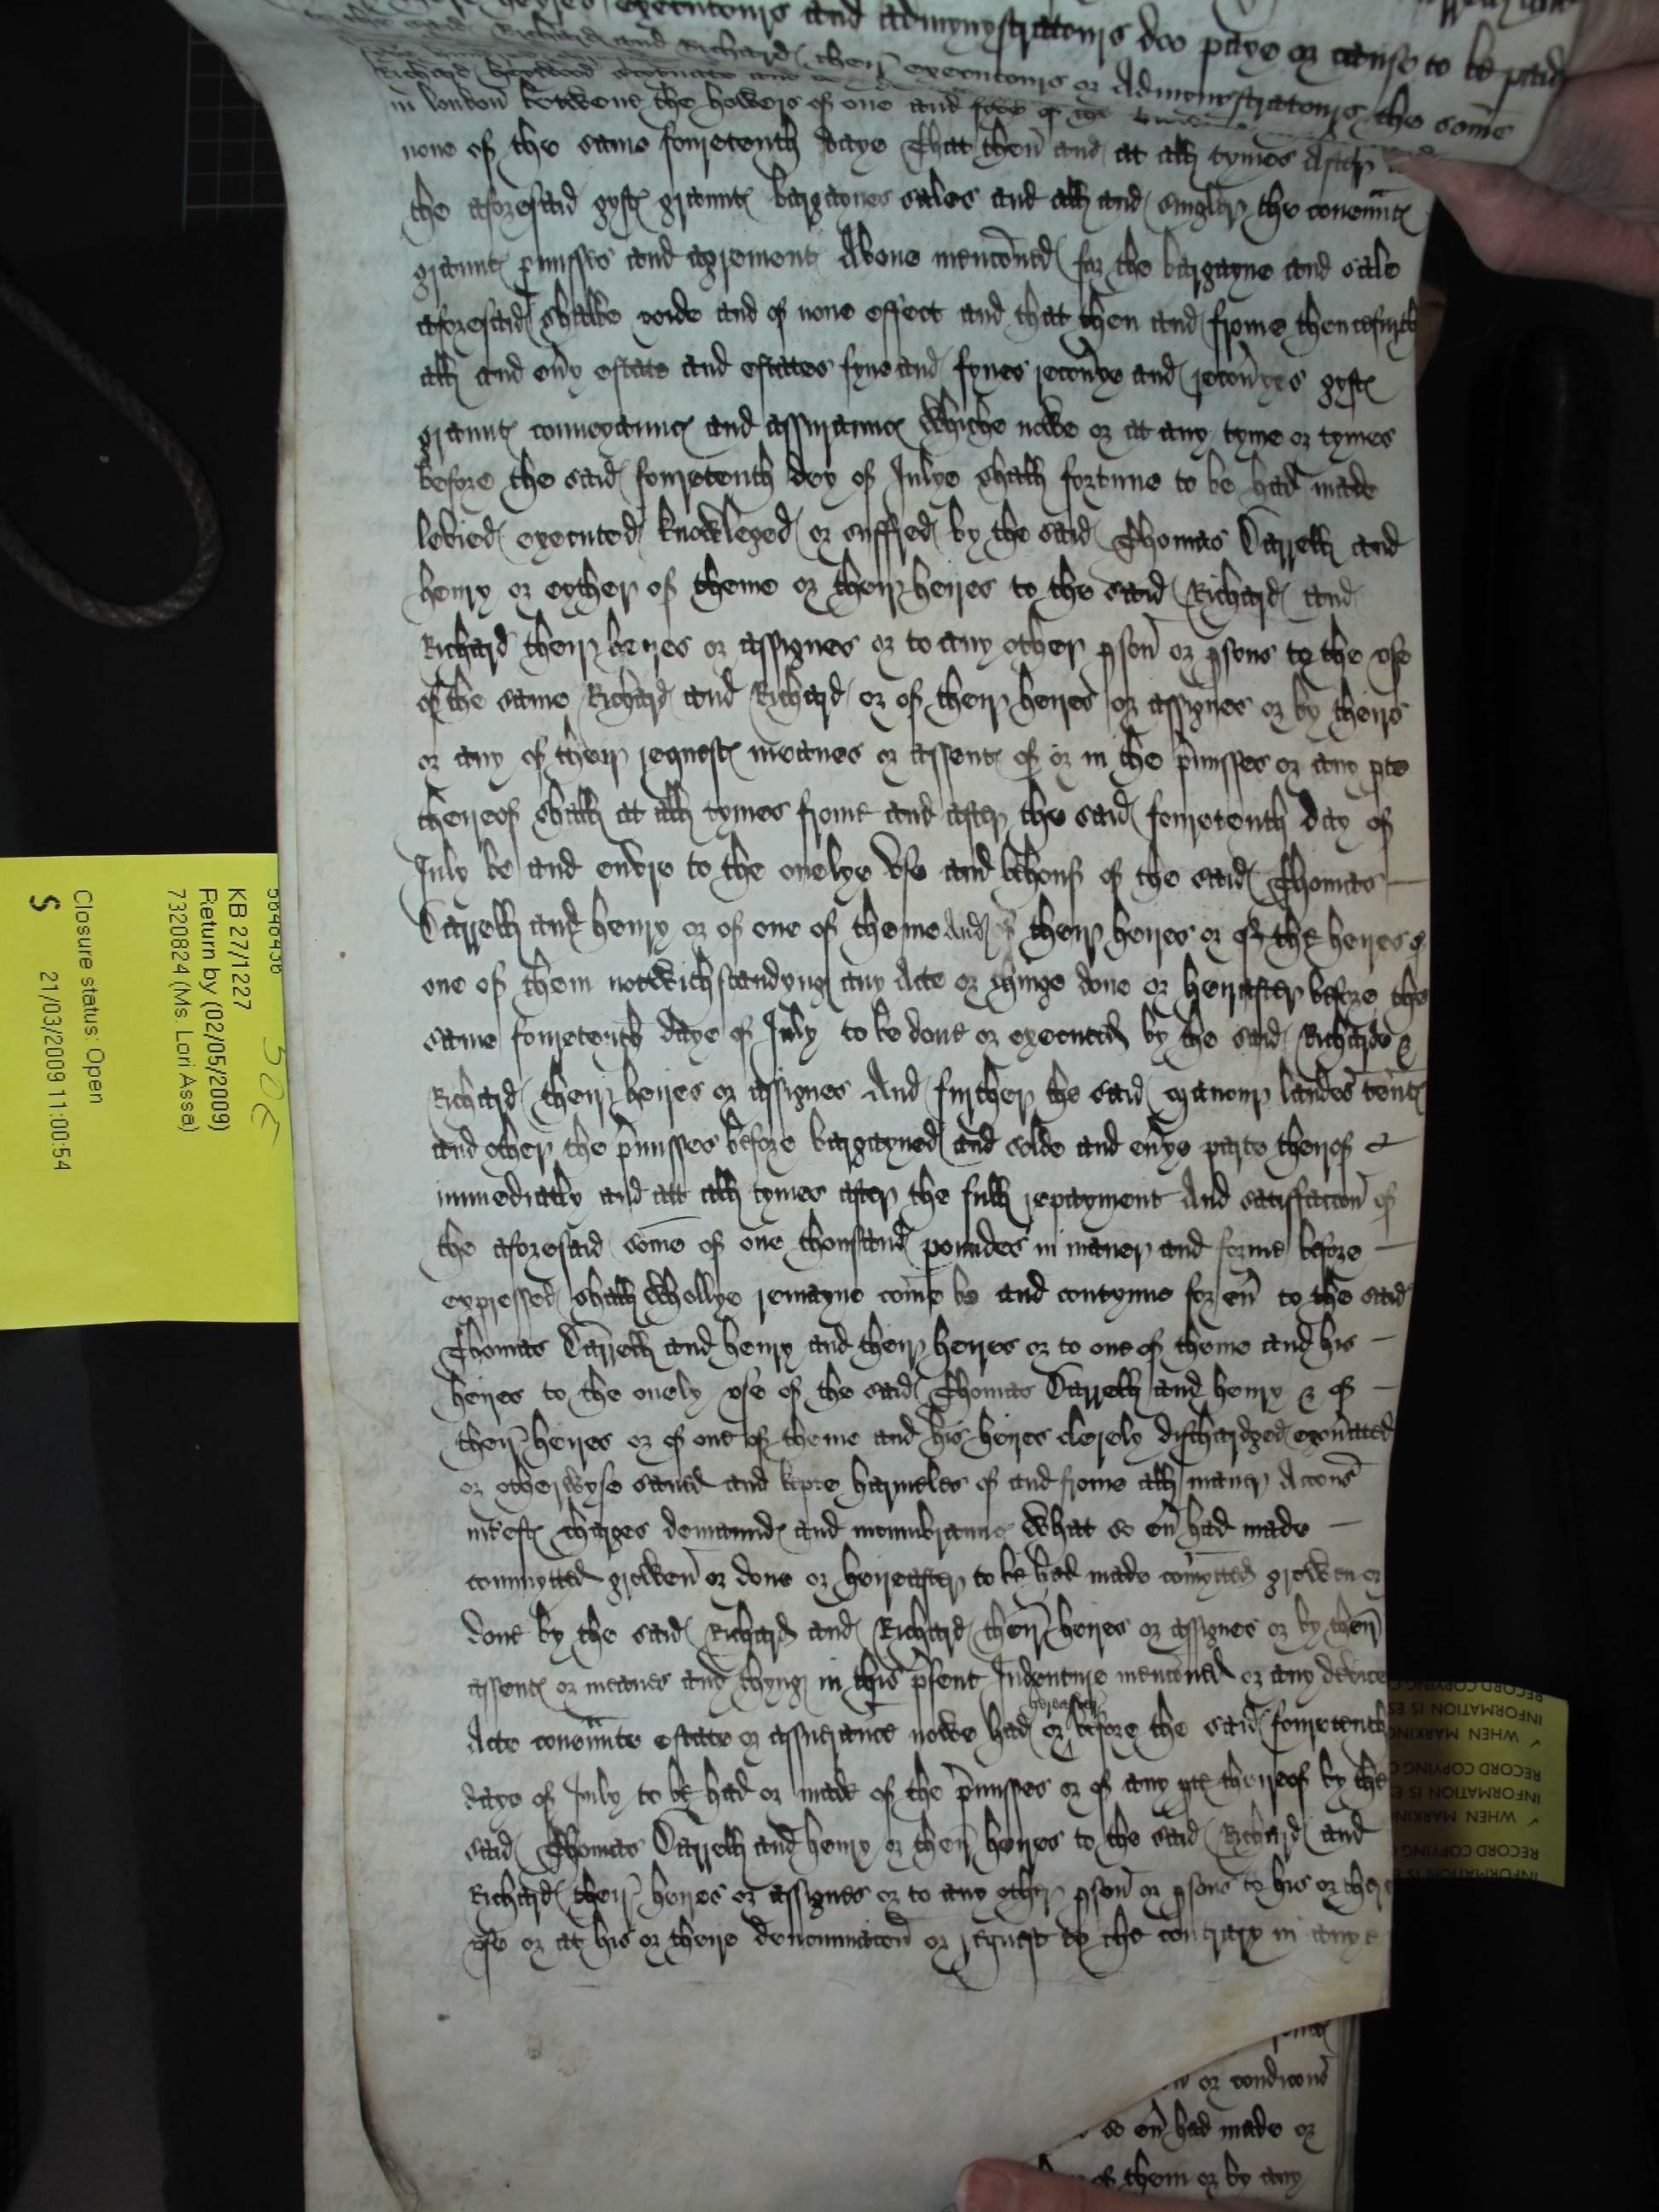 heyres executours and admynystratours doo paye or cause to be paid
to the said Richard and Richard their executours or Admynystratours the some
in london betwene the howers of one and
none of the same fouretenth daye That then and at all tymes After
the aforesaid gyft graunt bargaynes sales and all and singler the covenntes
graunt pmisses and agrement Above mencoed for the bargayne and sale
aforesaid shalbe voide and of none effect and that then and frome thencefurth
all and evy estate and estates fyne and fynes recovye and recovyes gyft
graunt conveyaunc and assuraunc Whiche nowe or at any tyme or tymes
before the said fouretenth dey of Julye shall fortune to be had made
levied executed knowleged or suffred by the said Thomas Darrell and
henry or eyther of theme or their heires to the said Richard and
Richard their heires or assignes or to any other pson or psons to the use
of the same Richard and Richard or of their heires or assignes or by theirs
or any of their request meanes or assent of or in the pmisses or any pte
thereof shall at all tymes frome and after the said fouretenth day of
July be and enure to the onelye Use and behouf of the said Thomas
Darrell and henry or of one of theme And of their heires or of the heires of
one of them notwithstandyng any Acte or thinge done or herafter before the
same fouretenth daye of July to be done or executed by the said Richarde &
Richard their heires or assignes And further the said manour landes tent
and other the pmisses before bargayned and solde and evye parte therof
immediatly and att all tymes after the full repayment And satisfaccon of
the aforesaid some of one thousand poundes in maner and forme before
expressed shall Whollye remayne come be and contynue for ev to the said
Thomas Darrell and henry and their heires or to one of theme and his
heires to the onely use of the said Thomas Darrell and henry & of
their heires or of one of theme and his heires clerely dischardged exonated
or otherwyse saved and kepte harmeles of and frome all maner Accons
intest charges demaund and incumbraunc What so ev had made
commytted growen or done or hereafter to be had made comytted growen or
done by the said Richard and Richard their heires or assignes or by their
assent or meanes and thyng in this psent Indenture mencoed or any device
herafter
Acte convnte estate or assuraunce nowe had or before the said fouretenth
daye of July to be had or made of the pmisses or of any pte thereof by the
said Thomas Darrell and henry or their heires to the said Richard and
Richard their heires or assignes or to any other pson or psons to his or there
use or at his or theire denominacon or request to the contrary in any
or condicons
so ev had made or
of them or by any
KB 27/1227
Return by (02/05/2009)
7320824 (Ms. Lori Asse)
Closure status: Open
S 21/03/2009 11:00:54
RECORD COPYING
INFORMATION IS ES
✓ WHEN MARKING
RECORD COPYING
INFORMATION IS ES
✓ WHEN MARKING
RECORD COPYING
INFORMATION IS E